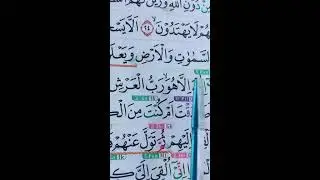 دُونِ اللّٰهِ وَزَيَّنَ لَهُمُ
هُمْ لَا يَهْتَدُوْنَ ۙ ٢٤ اَلَّا يَسْجُ
السَّمٰوٰتِ وَالْاَرْضِ وَيَعْلَ
اِلَّا هُوَ رَبُّ الْعَرْشِ
اَمْ كُنْتَ مِنَ الْ
اِلَيْهِمْ ثُمَّ تَوَلَّ عَنْهُمْ
اِنِّيْٓ اُلْقِيَ اِلَيَّ